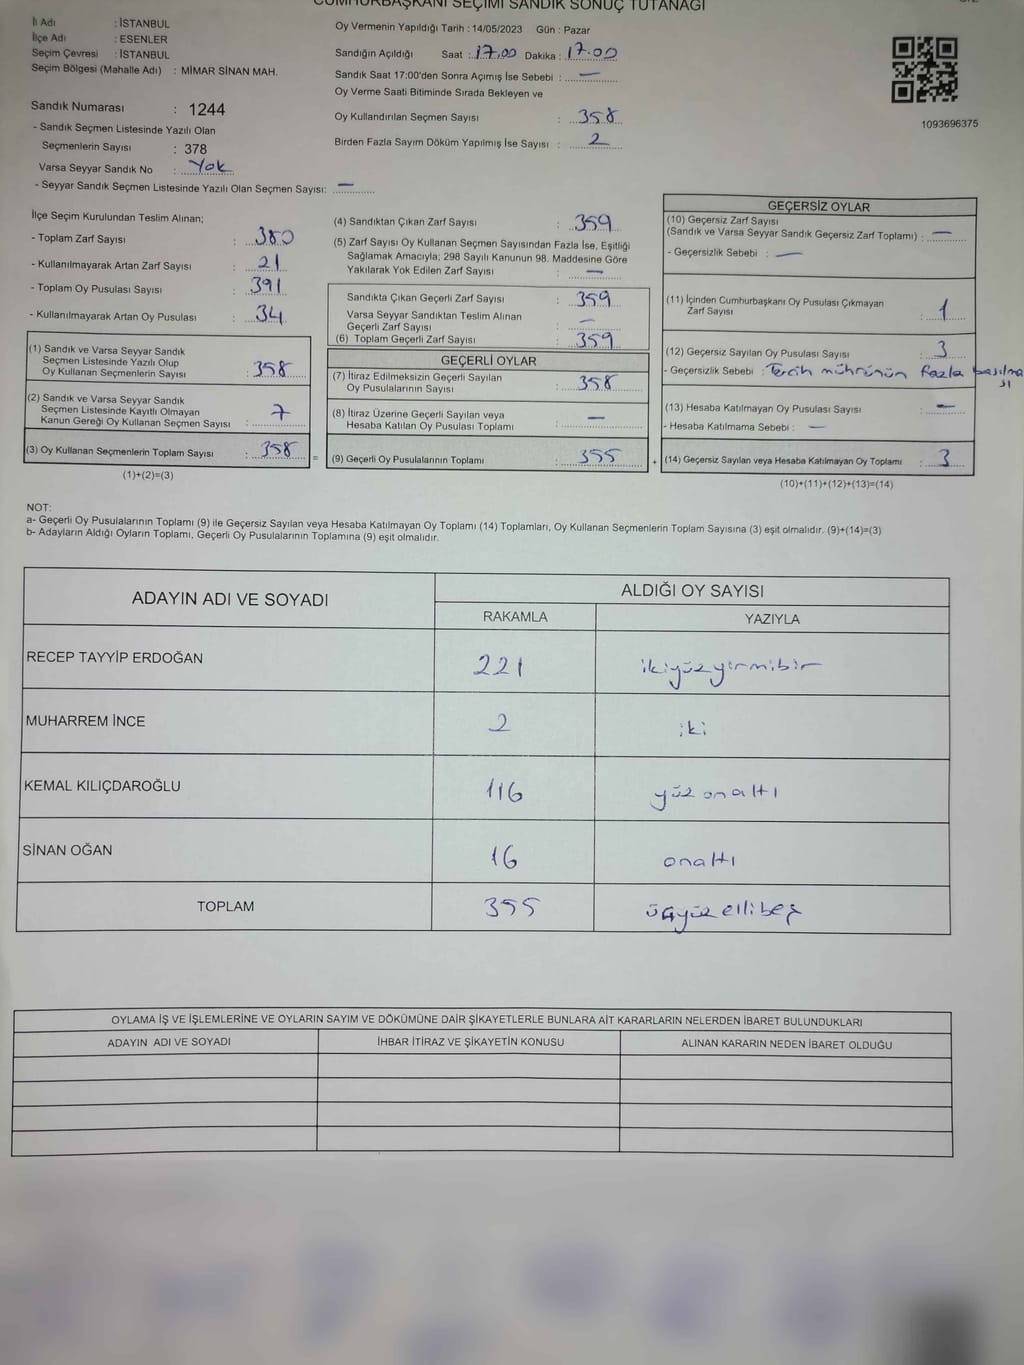 CUMHURBAŞKANI SEÇİMİ SANDIK SONUÇ TUTANAĞI
İli Adı : İSTANBUL
İlçe Adı : ESENLER
Seçim Çevresi : İSTANBUL
Seçim Bölgesi (Mahalle Adı) : MİMAR SİNAN MAH.
Sandık Numarası : 1244
- Sandık Seçmen Listesinde Yazılı Olan
Seçmenlerin Sayısı : 378
Varsa Seyyar Sandık No : Yok
- Seyyar Sandık Seçmen Listesinde Yazılı Olan Seçmen Sayısı: —
Oy Vermenin Yapıldığı Tarih : 14/05/2023 Gün : Pazar
Sandığın Açıldığı Saat : 17.00 Dakika : 17.00
Sandık Saat 17:00'den Sonra Açımış İse Sebebi : —
Oy Verme Saati Bitiminde Sırada Bekleyen ve
Oy Kullandırılan Seçmen Sayısı : 358
Birden Fazla Sayım Döküm Yapılmış İse Sayısı : 2
1093696375
İlçe Seçim Kurulundan Teslim Alınan;
- Toplam Zarf Sayısı : 380
- Kullanılmayarak Artan Zarf Sayısı : 21
- Toplam Oy Pusulası Sayısı : 391
- Kullanılmayarak Artan Oy Pusulası : 34
(1) Sandık ve Varsa Seyyar Sandık
Seçmen Listesinde Yazılı Olup
Oy Kullanan Seçmenlerin Sayısı : 358
(2) Sandık ve Varsa Seyyar Sandık
Seçmen Listesinde Kayıtlı Olmayan
Kanun Gereği Oy Kullanan Seçmen Sayısı :
(3) Oy Kullanan Seçmenlerin Toplam Sayısı : 358 =
(1)+(2)=(3)
(4) Sandıktan Çıkan Zarf Sayısı : 359
(5) Zarf Sayısı Oy Kullanan Seçmen Sayısından Fazla İse, Eşitliği
Sağlamak Amacıyla; 298 Sayılı Kanunun 98. Maddesine Göre
Yakılarak Yok Edilen Zarf Sayısı : —
Sandıkta Çıkan Geçerli Zarf Sayısı : 359
Varsa Seyyar Sandıktan Teslim Alınan
Geçerli Zarf Sayısı : —
(6) Toplam Geçerli Zarf Sayısı : 359
GEÇERLİ OYLAR
(7) İtiraz Edilmeksizin Geçerli Sayılan
Oy Pusulalarının Sayısı : 358
(8) İtiraz Üzerine Geçerli Sayılan veya
Hesaba Katılan Oy Pusulası Toplamı : —
(9) Geçerli Oy Pusulalarının Toplamı : 355 +
GEÇERSİZ OYLAR
(10) Geçersiz Zarf Sayısı
(Sandık ve Varsa Seyyar Sandık Geçersiz Zarf Toplamı) : —
- Geçersizlik Sebebi : —
(11) İçinden Cumhurbaşkanı Oy Pusulası Çıkmayan
Zarf Sayısı : 1
(12) Geçersiz Sayılan Oy Pusulası Sayısı : 3
- Geçersizlik Sebebi : Tercih mührünün fazla basılma
sı
(13) Hesaba Katılmayan Oy Pusulası Sayısı : —
- Hesaba Katılmama Sebebi : —
(14) Geçersiz Sayılan veya Hesaba Katılmayan Oy Toplamı : 3
(10)+(11)+(12)+(13)=(14)
NOT:
a- Geçerli Oy Pusulalarının Toplamı (9) ile Geçersiz Sayılan veya Hesaba Katılmayan Oy Toplamı (14) Toplamları, Oy Kullanan Seçmenlerin Toplam Sayısına (3) eşit olmalıdır. (9)+(14)=(3)
b- Adayların Aldığı Oyların Toplamı, Geçerli Oy Pusulalarının Toplamına (9) eşit olmalıdır.
ADAYIN ADI VE SOYADI ALDIĞI OY SAYISI
RAKAMLA YAZIYLA
RECEP TAYYİP ERDOĞAN 221 ikiyüzyirmibir
MUHARREM İNCE 2 iki
KEMAL KILIÇDAROĞLU 116 yüzonaltı
SİNAN OĞAN 16 onaltı
TOPLAM 355 üçyüzellibeş
OYLAMA İŞ VE İŞLEMLERİNE VE OYLARIN SAYIM VE DÖKÜMÜNE DAİR ŞİKAYETLERLE BUNLARA AİT KARARLARIN NELERDEN İBARET BULUNDUKLARI
ADAYIN ADI VE SOYADI İHBAR İTİRAZ VE ŞİKAYETİN KONUSU ALINAN KARARIN NEDEN İBARET OLDUĞU